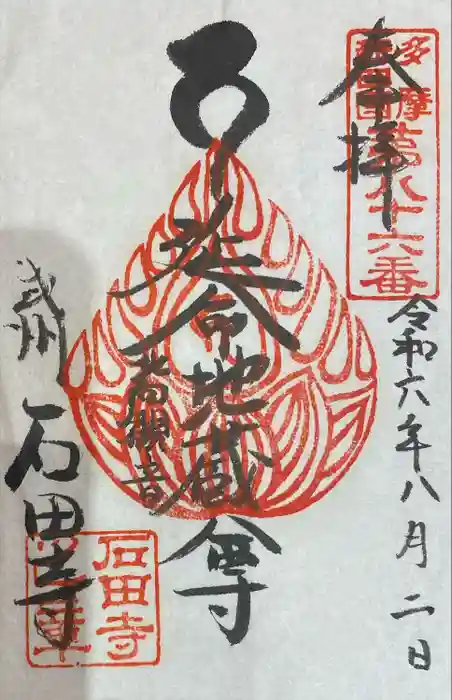 奉拝
多摩
八十八
第八十六番
令和六年八月二日
延命地蔵尊
武州
石田寺
石田寺